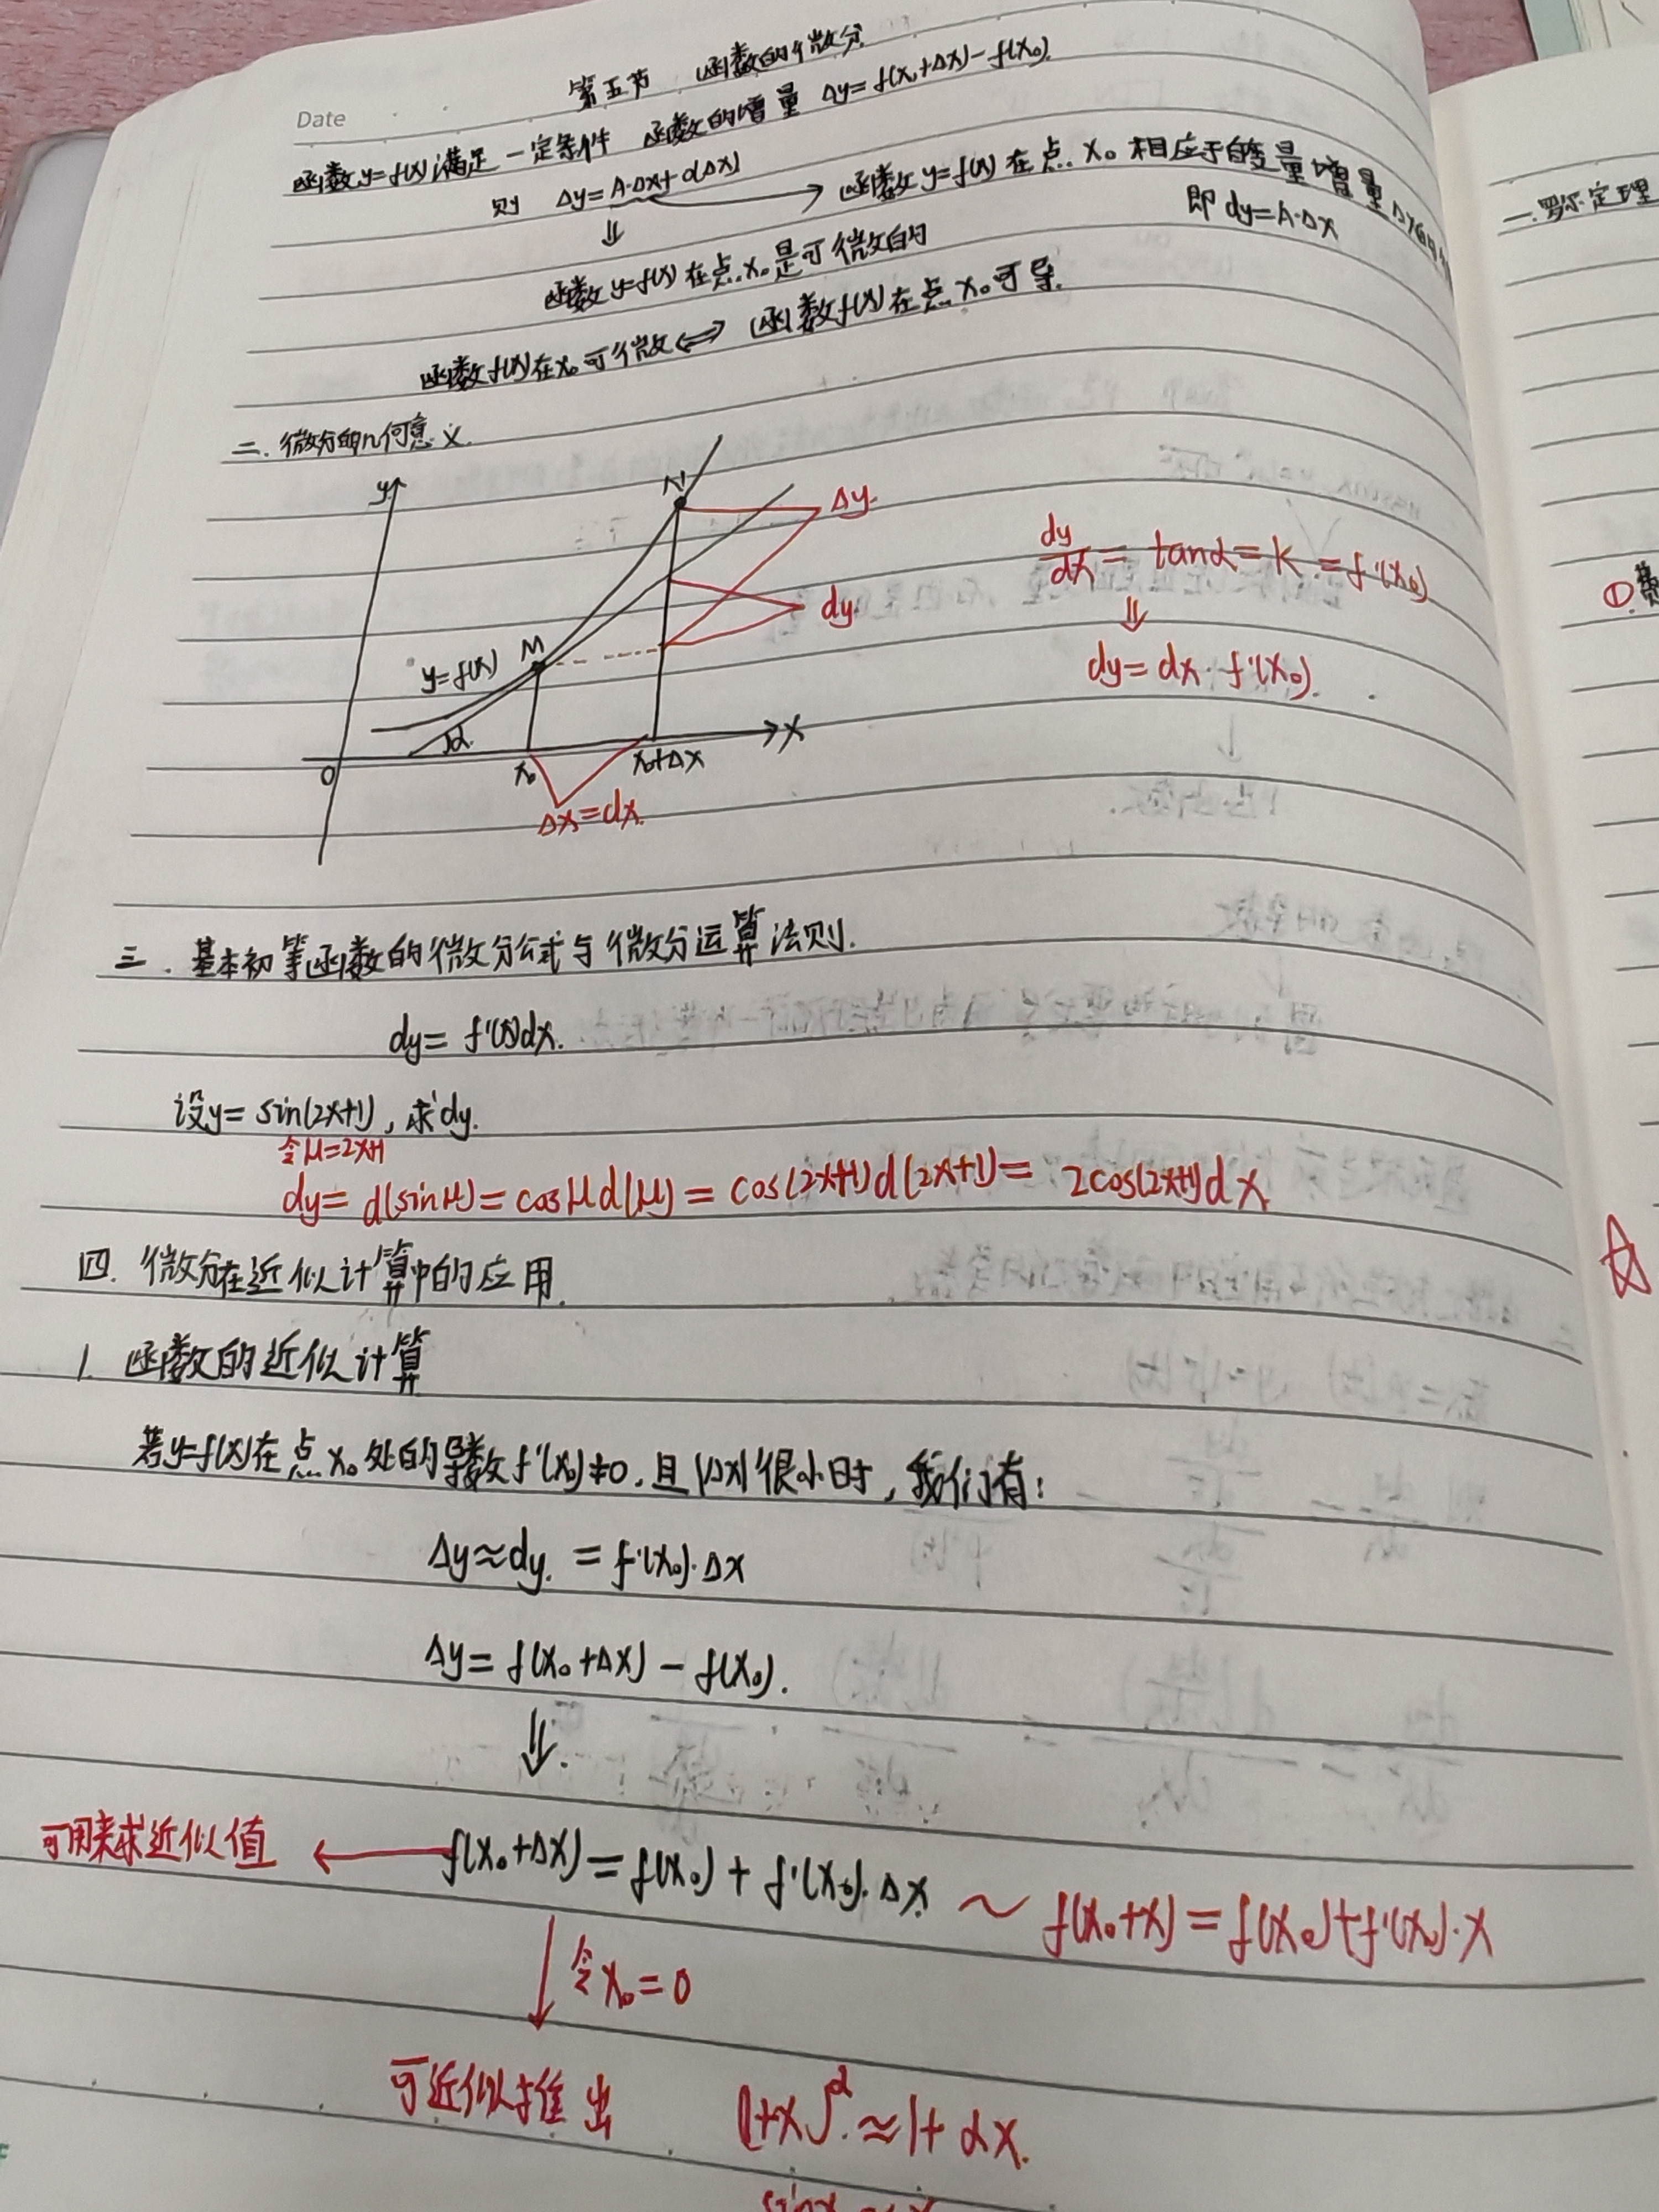 Date
第五节 函数的微分
函数y=f(x)满足一定条件 函数的增量 Δy=f(x₀+Δx)-f(x₀).
则 Δy=A·Δx+o(Δx)
函数y=f(x)在点x₀相应于自变量增量Δx的
即 dy=A·Δx
⇓
函数y=f(x)在点x₀是可微的
函数f(x)在x₀可微⇔函数f(x)在点x₀可导.
二. 微分的几何意义.
y
N
Δy
dy
M
y=f(x)
α
O
x₀
x₀+Δx
x
Δx=dx.
dy/dx=tanα=k=f'(x₀)
⇓
dy=dx·f'(x₀).
三. 基本初等函数的微分公式与微分运算法则.
dy=f'(x)dx.
设y=sin(2x+1), 求dy.
令μ=2x+1
dy=d(sinμ)=cosμd(μ)=cos(2x+1)d(2x+1)=2cos(2x+1)dx
四. 微分在近似计算中的应用.
1. 函数的近似计算
若y=f(x)在点x₀处的导数f'(x₀)≠0,且|Δx|很小时,我们有:
Δy≈dy.=f'(x₀)·Δx
Δy=f(x₀+Δx)-f(x₀).
⇓.
可用来求近似值 ← f(x₀+Δx)=f(x₀)+f'(x₀)·Δx ~ f(x₀+x)=f(x₀)+f'(x₀)·x
↓ 令x₀=0
可近似推出 (1+x)^α.≈1+αx.
一.罗尔定理
①